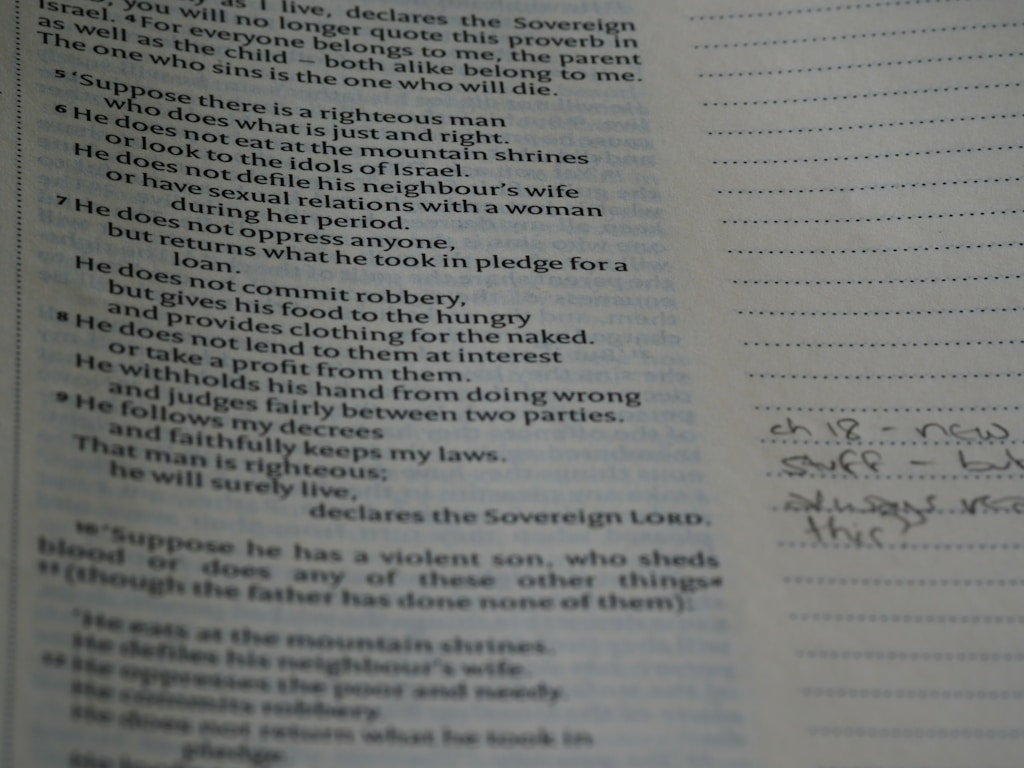 as I live, declares the Sovereign
you will no longer quote this proverb in
Israel. 4 For everyone belongs to me, the parent
as well as the child – both alike belong to me.
The one who sins is the one who will die.
5 ‘Suppose there is a righteous man
who does what is just and right.
6 He does not eat at the mountain shrines
or look to the idols of Israel.
He does not defile his neighbour’s wife
or have sexual relations with a woman
during her period.
7 He does not oppress anyone,
but returns what he took in pledge for a
loan.
He does not commit robbery,
but gives his food to the hungry
and provides clothing for the naked.
8 He does not lend to them at interest
or take a profit from them.
He withholds his hand from doing wrong
and judges fairly between two parties.
9 He follows my decrees
and faithfully keeps my laws.
That man is righteous;
he will surely live,
declares the Sovereign LORD.
10 ‘Suppose he has a violent son, who sheds
blood or does any of these other things
11 (though the father has done none of them):
‘He eats at the mountain shrines.
He defiles his neighbour’s wife.
12 He oppresses the poor and needy.
He commits robbery.
He does not return what he took in
pledge.
ch 18 - new
stuff - but
always
this